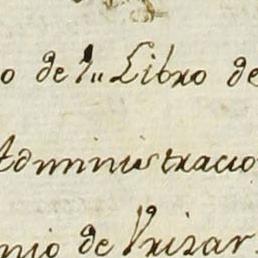 o de su Libro de
Administracio
nio de Vrizar